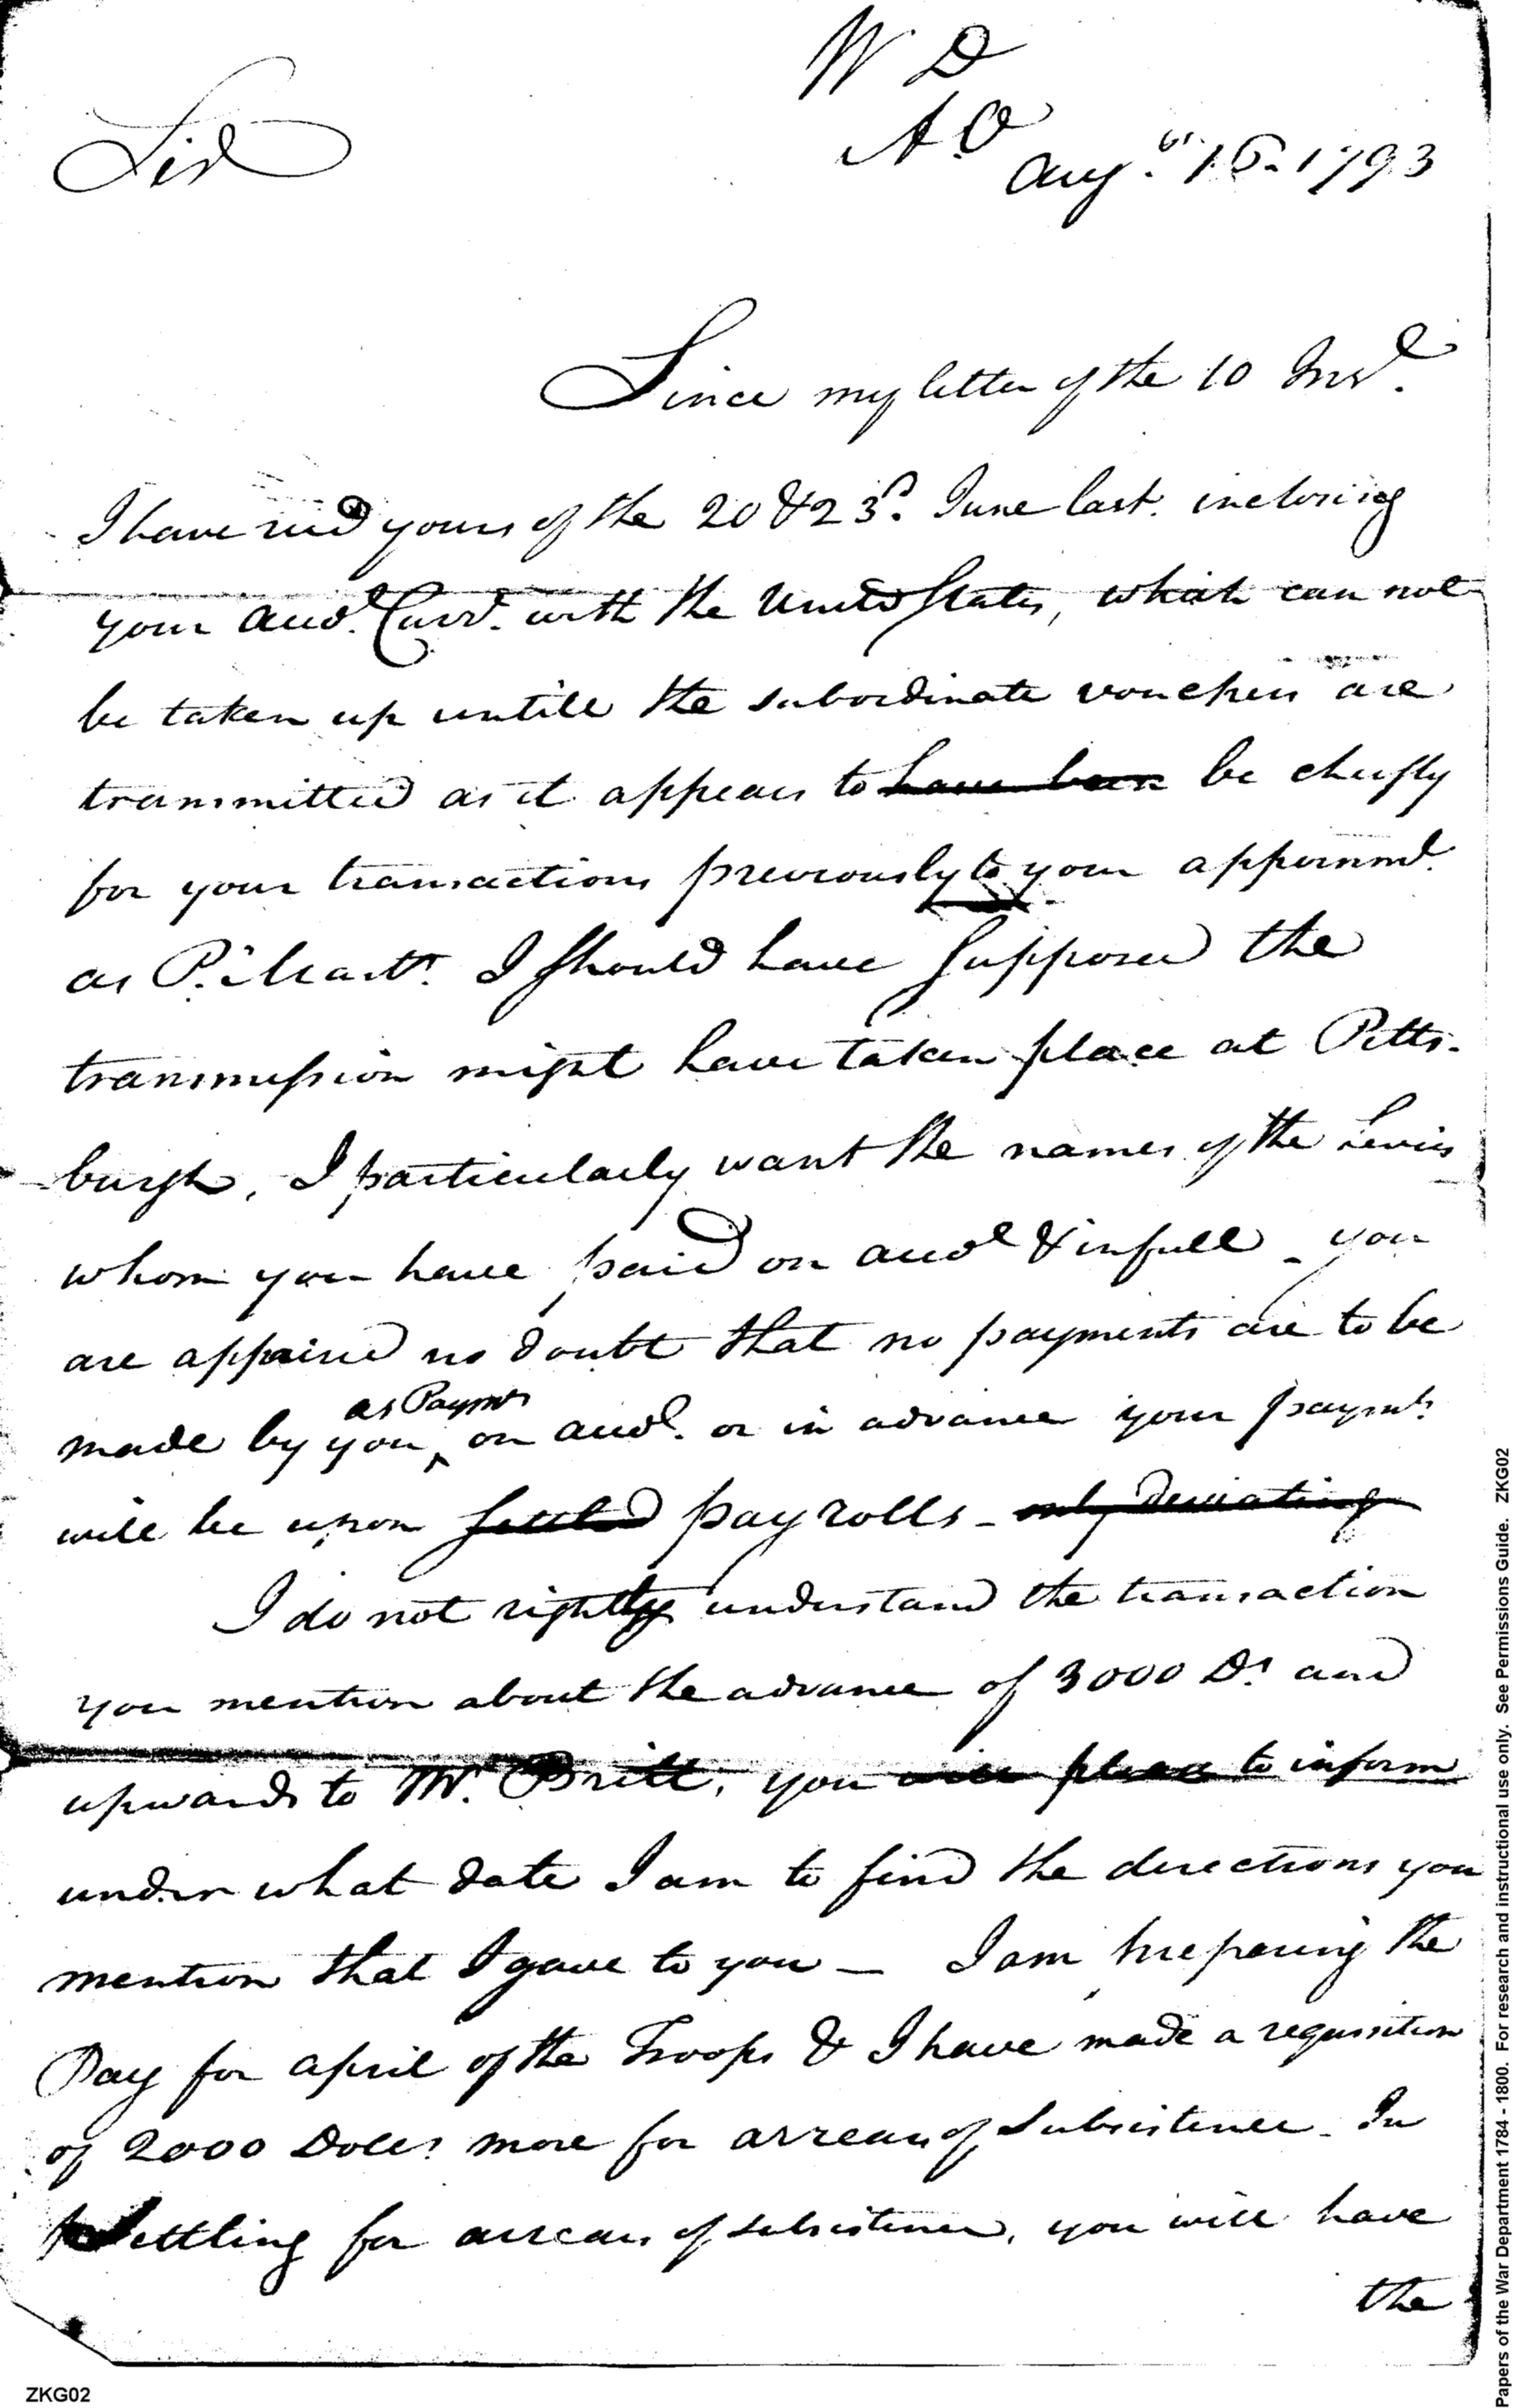 W D
A. O
Sir
Augt. 16. 1793
Since my letter of the 10 Inst.
I have recd yours of the 20 & 23d. June last. inclosing
your Accot. Curr. with the United States, which can not
be taken up untill the subordinate vouchers are
transmitted as it appears to have been be cheifly
for your transactions previously to your appointmt.
as P. Mastr. I should have supposed the
transmission might have taken place at Pitts-
burgh, I particularly want the names of the Levies
whom you have paid on accot & in full - you
are apprised no doubt that no payments are to be
as Paymr
made by you ^ on accot. or in advance your paymts.
will be upon settled pay rolls - only deviating
I do not rightly understand the transaction
you mention about the advance of 3000 Ds. and
upwards to Mr. Britt, you will please to inform
under what date I am to find the directions you
mention that I gave to you — I am preparing the
Pay for april of the Troops & I have made a requisition
of 2000 Dolls. more for arrears of subsistence - In
settling for arrears of subsistence, you will have
the
ZKG02
Papers of the War Department 1784 - 1800. For research and instructional use only. See Permissions Guide. ZKG02